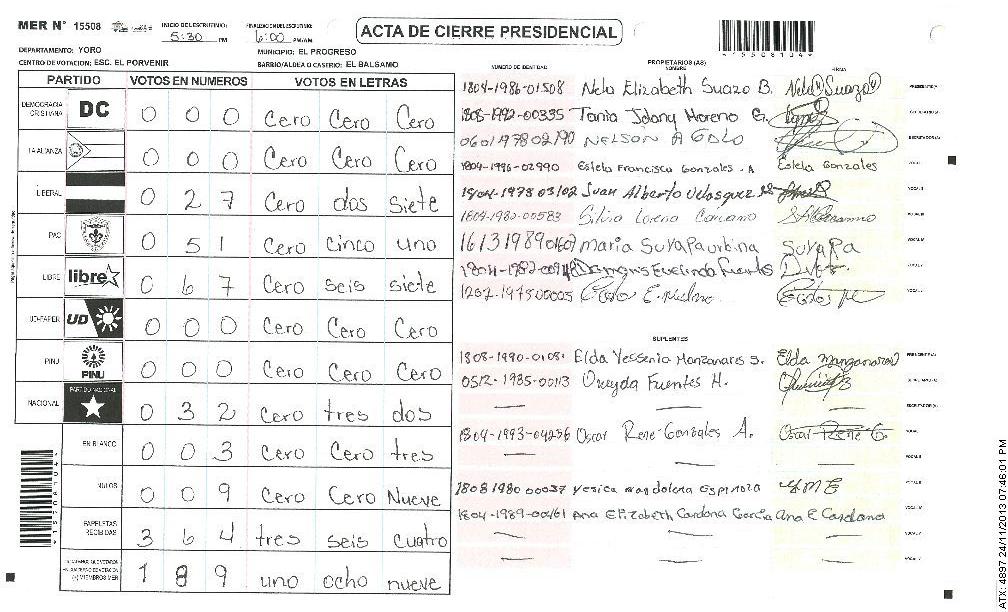 MER N° 15508
INICIO DE ESCRUTINIO: 5:30 PM
FINALIZACION DEL ESCRUTINIO: 6:00 PM/AM
ACTA DE CIERRE PRESIDENCIAL
DEPARTAMENTO: YORO
MUNICIPIO: EL PROGRESO
CENTRO DE VOTACION: ESC. EL PORVENIR
BARRIO/ALDEA O CASERIO: EL BALSAMO
PARTIDO VOTOS EN NUMEROS VOTOS EN LETRAS
DEMOCRACIA CRISTIANA DC 0 0 0 Cero Cero Cero
LA ALIANZA 0 0 0 Cero Cero Cero
LIBERAL 0 27 Cero dos siete
PAC 0 5 1 Cero cinco uno
LIBRE libre 0 6 7 Cero seis siete
UD-FAPER UD 0 0 0 Cero Cero Cero
PINU PINU 0 0 0 Cero Cero Cero
NACIONAL PARTIDO NACIONAL 0 3 2 Cero tres dos
EN BLANCO 0 0 3 Cero Cero tres
NULOS 0 0 9 Cero Cero Nueve
PAPELETAS RECIBIDAS 3 6 4 tres seis cuatro
1 8 9 uno ocho nueve
NUMERO DE IDENTIDAD PROPIETARIOS (AS) NOMBRE FIRMA
1804-1986-01508 Nelo Elizabeth Suazo B. Nelo Suazo
1808-1992-00335 Tania Jdany Moreno G.
0601197802190 NELSON A
1804-1996-02990 Estela Francisca Gonzales - A Estela Gonzales
1804-1978 03102 Juan Alberto Velasquez
1804-1980-00583 Silvia Lorena
1613198901607 maria Suyapa urbina Suyapa
Evelinda Fuentes
1202-197500005
SUPLENTES
1808-1990-0108 Elda Yessenia Manzanares S. Elda Manzanares
0512-1985-00113 Oneyda Fuentes H.
1804-1993-04256 Oscar Rene Gonzales A. Oscar Rene G.
1808 1980 00037 Yesica magdalena Espinoza YME
1804-1989-00461 Ana Elizabeth Cardona Garcia Ana E Cardona
ATX: 4897 24/11/2013 07:46:01 PM